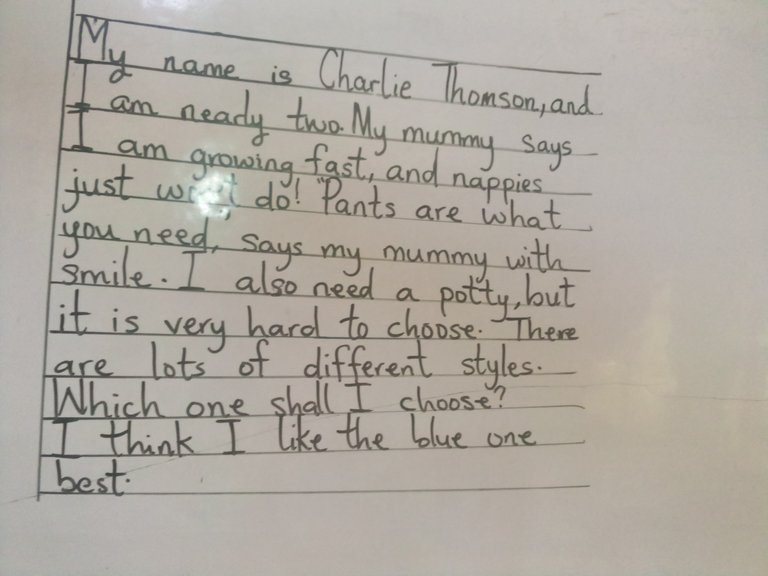 My name is Charlie Thomson, and
I am nearly two. My mummy says
I am growing fast, and nappies
just do! "Pants are what
you need, says my mummy with
smile. I also need a potty, but
it is very hard to choose. There
are lots of different styles.
Which one shall I choose?
I think I like the blue one
best.